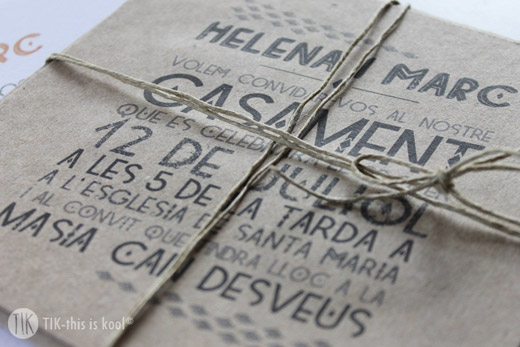 HELENA I MARC
VOLEM CONVIDAR-VOS AL NOSTRE
CASAMENT
QUE ES CELEBRARÀ
12 DE JULIOL
A LES 5 DE LA TARDA A
A L'ESGLÉSIA DE SANTA MARIA
I AL CONVIT QUE TINDRÀ LLOC A LA
MASIA CAN DESVEUS
RC
TIK
TIK-this is kool